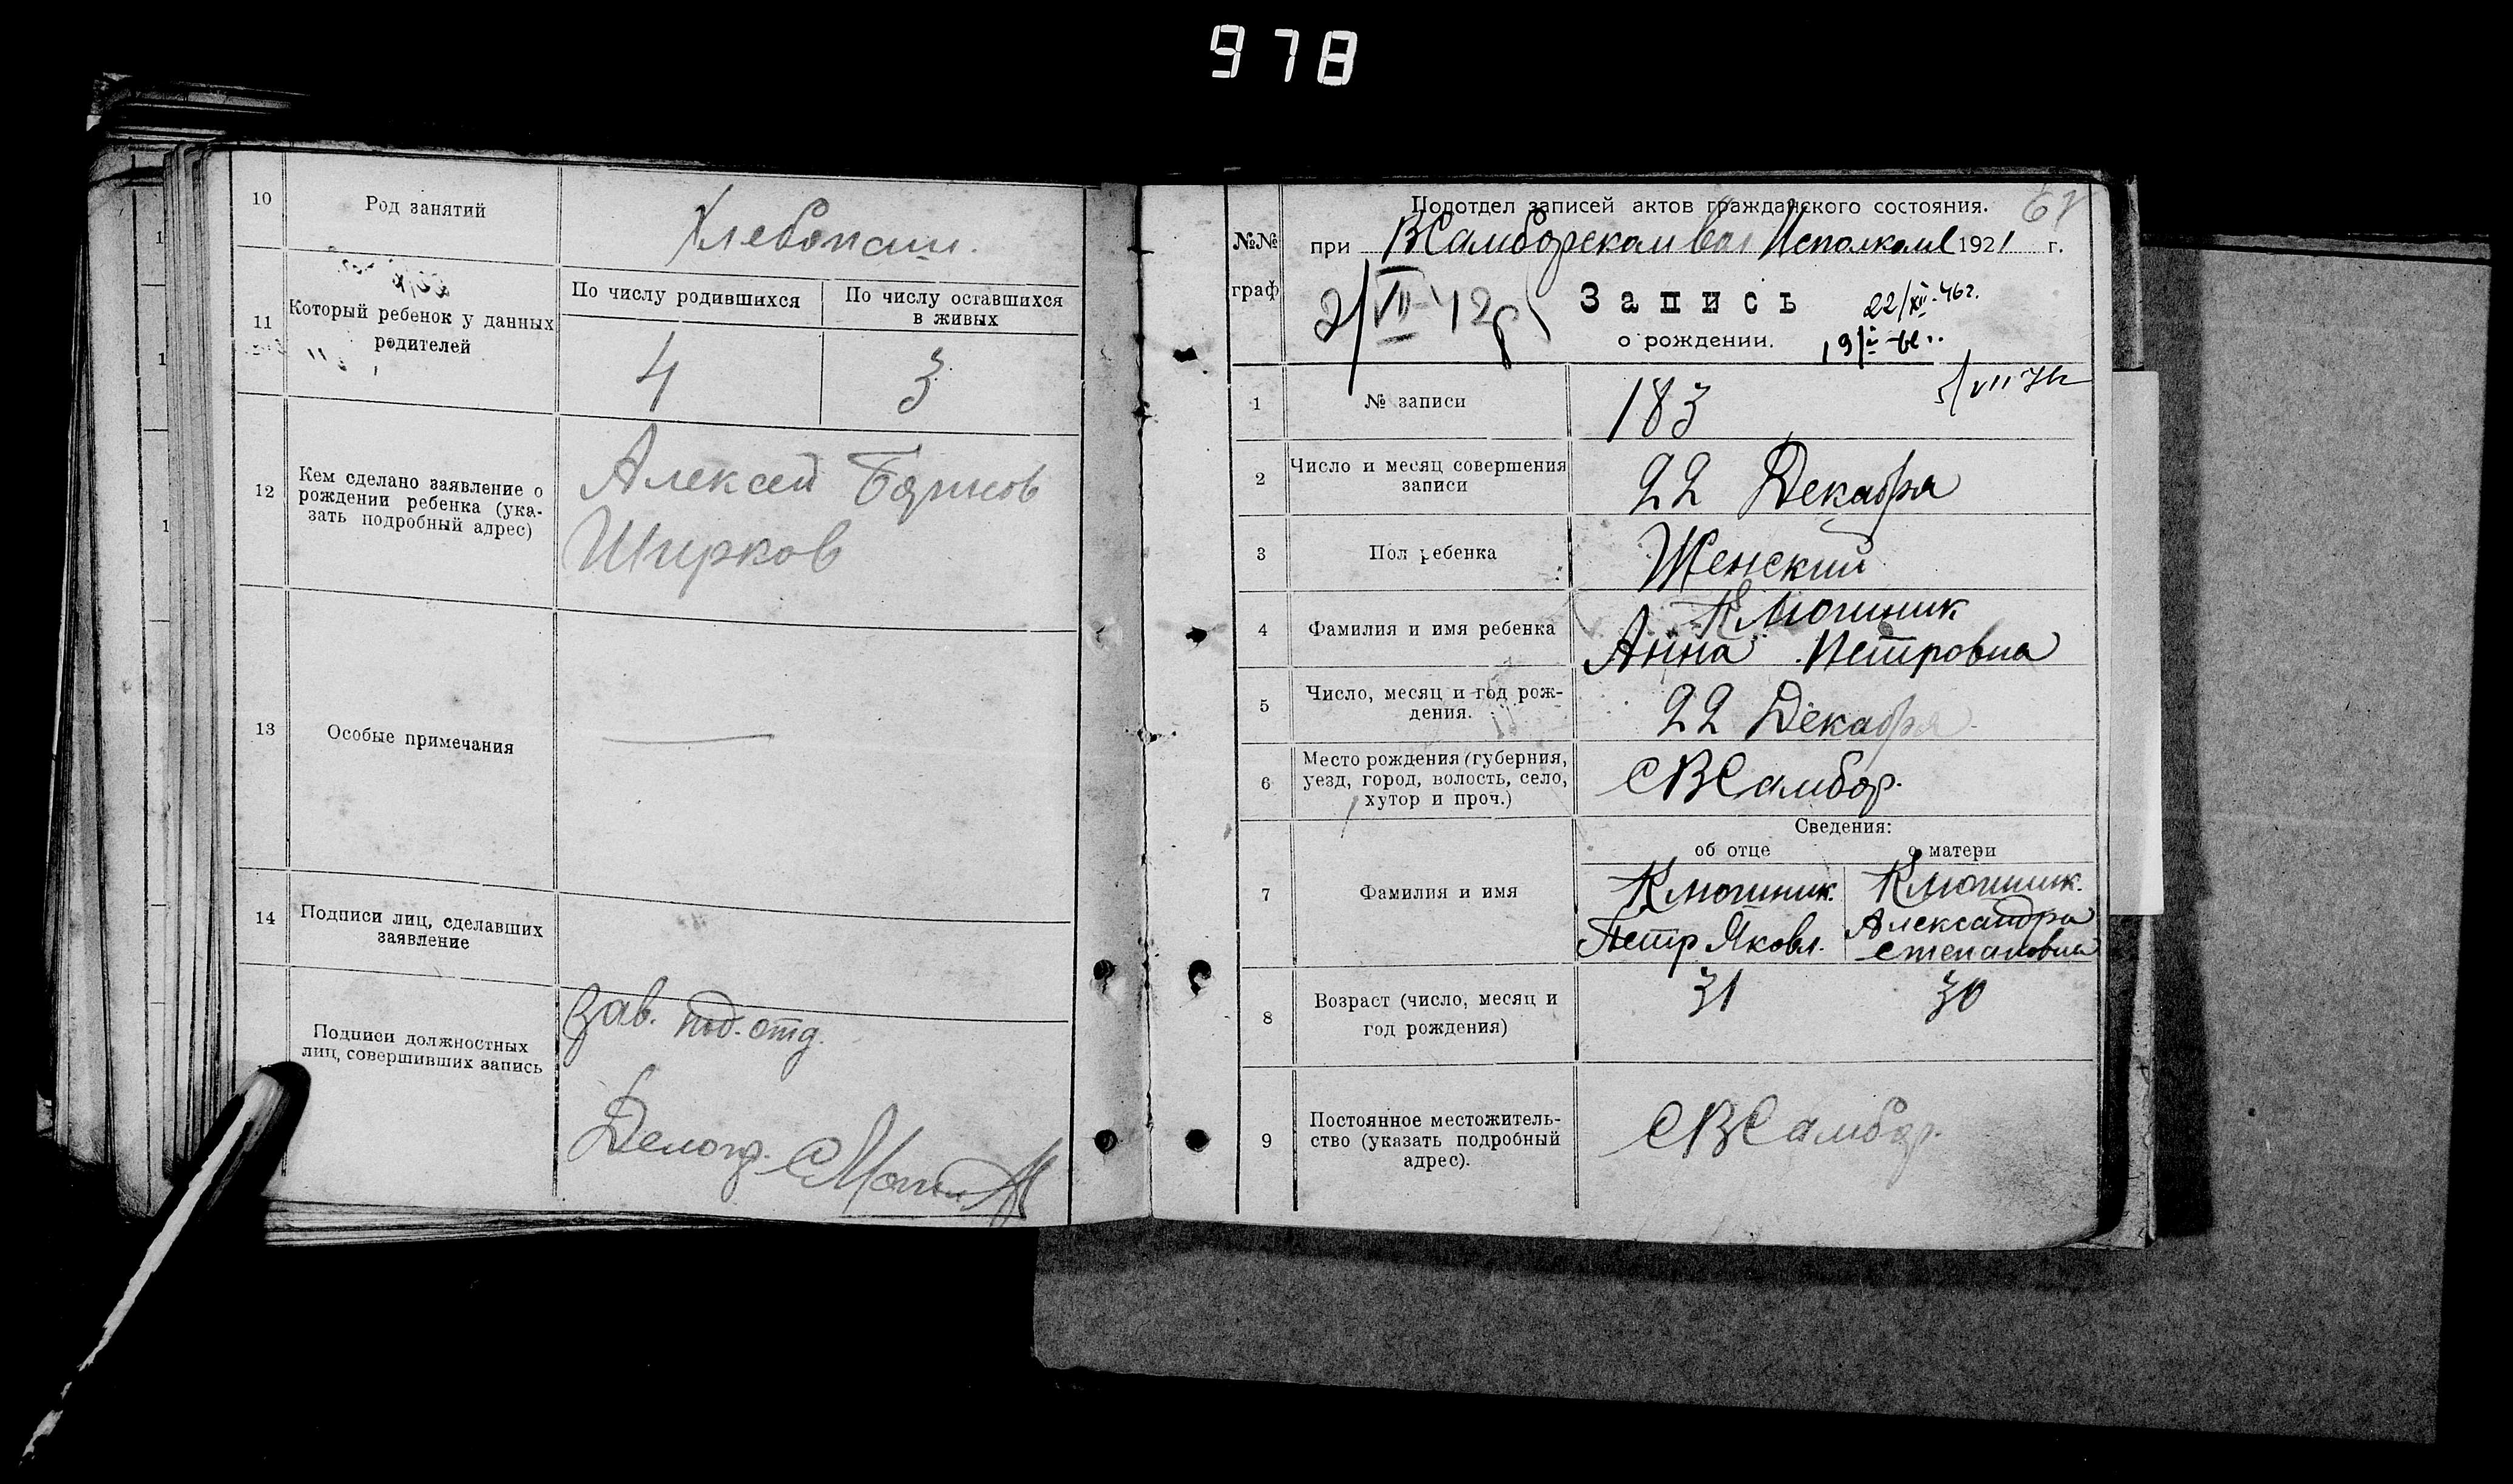 978
10
Род занятий
Хлебопаш.
11
Который ребенок у данных
родителей
По числу родившихся
По числу оставшихся
в живых
4
3
12
Кем сделано заявление о
рождении ребенка (ука-
зать подробный адрес)
Алексей
Ширков
13
Особые примечания
14
Подписи лиц, сделавших
заявление
Подписи должностных
лиц, совершивших запись
Зав. под. отд.
Делопр.
Подотдел записей актов гражданского состояния.
№№
граф
при ВСамборском Вол Исполкоме 1921 г.
2/VII-42р
Запись
22/XII-46г.
о рождении.
1
№ записи
183
2
Число и месяц совершения
записи
22 Декабря
3
Пол ребенка
Женский
4
Фамилия и имя ребенка
Ключник
Анна Петровна
5
Число, месяц и год рож-
дения.
22 Декабря
6
Место рождения (губерния,
уезд, город, волость, село,
хутор и проч.)
СВСамбор.
Сведения:
об отце
о матери
7
Фамилия и имя
Ключник.
Петр Яковл.
Ключник.
Александра
Степановна
8
Возраст (число, месяц и
год рождения)
31
30
9
Постоянное местожитель-
ство (указать подробный
адрес).
СВСамбор.